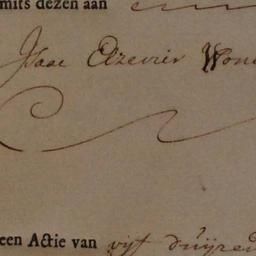 mits dezen aan
Isaac Elzevier Won
een Actie van vijf duijzen